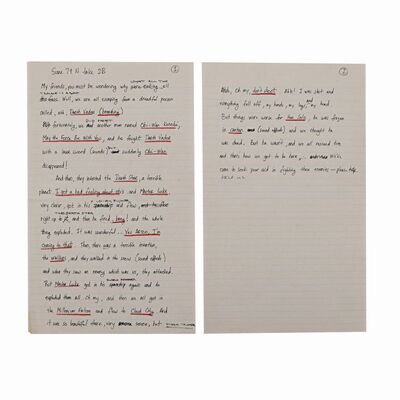 Scene 79 N take 2B
①
My friends, you must be wondering why we're making all
this fuss. Well, we are all escaping from a dreadful person
called, uh, Darth Vader (breathing)
But fortunately, we another ever named Obi-Wan Kenobi,
May the Force Be With You, and he fought Darth Vader
with a laser sword (sounds) suddenly Obi-Wan
disappeared!
And then, they entered the Death Star, a terrible
planet. I got a bad feeling about this and Master Luke,
very clever, got in his spaceship and flew
right up to it, and then he fired, bang! and the whole
thing exploded. It was wonderful ... Yes Artoo, I'm
coming to that. Then, there was a terrible invention,
the walkers, and they walked in the snow (sound effects)
and when they saw an enemy which was us, they attacked.
But Master Luke got in his spaceship again and he
exploded them all. Oh my, and then we all got in
the Millenium Falcon and flew to Cloud City. And
it was so beautiful there, very serene, but
②
Ahh, Oh my, don't shoot! Ahh! I was shot and
everything fell off, my hands, my legs, my head.
But things were worse for Han Solo, he was frozen
in carbon (sound effects) and we thought he
was dead. But he wasn't, and we all rescued him
and that's how we got to be here,
come to seek your aid in fighting these enemies – please help